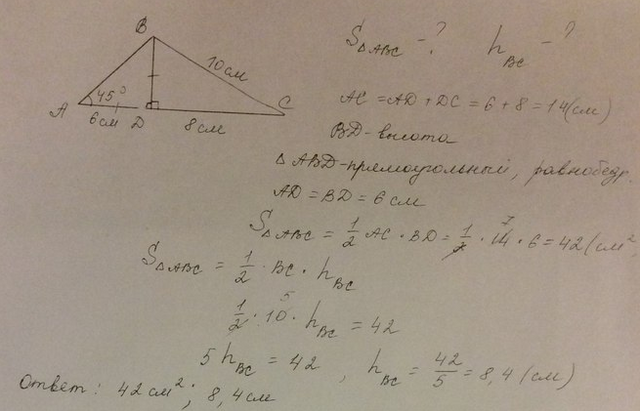 S△ABC - ? h BC - ?
B
10 см
45°
A 6 см D 8 см C
AC = AD + DC = 6 + 8 = 14 (см)
BD - высота
△ ABD - прямоугольный, равнобедр.
AD = BD = 6 см
S△ABC = 1/2 AC · BD = 1/2 · 14 7 · 6 = 42 (см²
S△ABC = 1/2 · BC · h BC
1/2 · 10 5 · h BC = 42
5 h BC = 42 , h BC = 42/5 = 8,4 (см)
Ответ: 42 см² ; 8,4 см